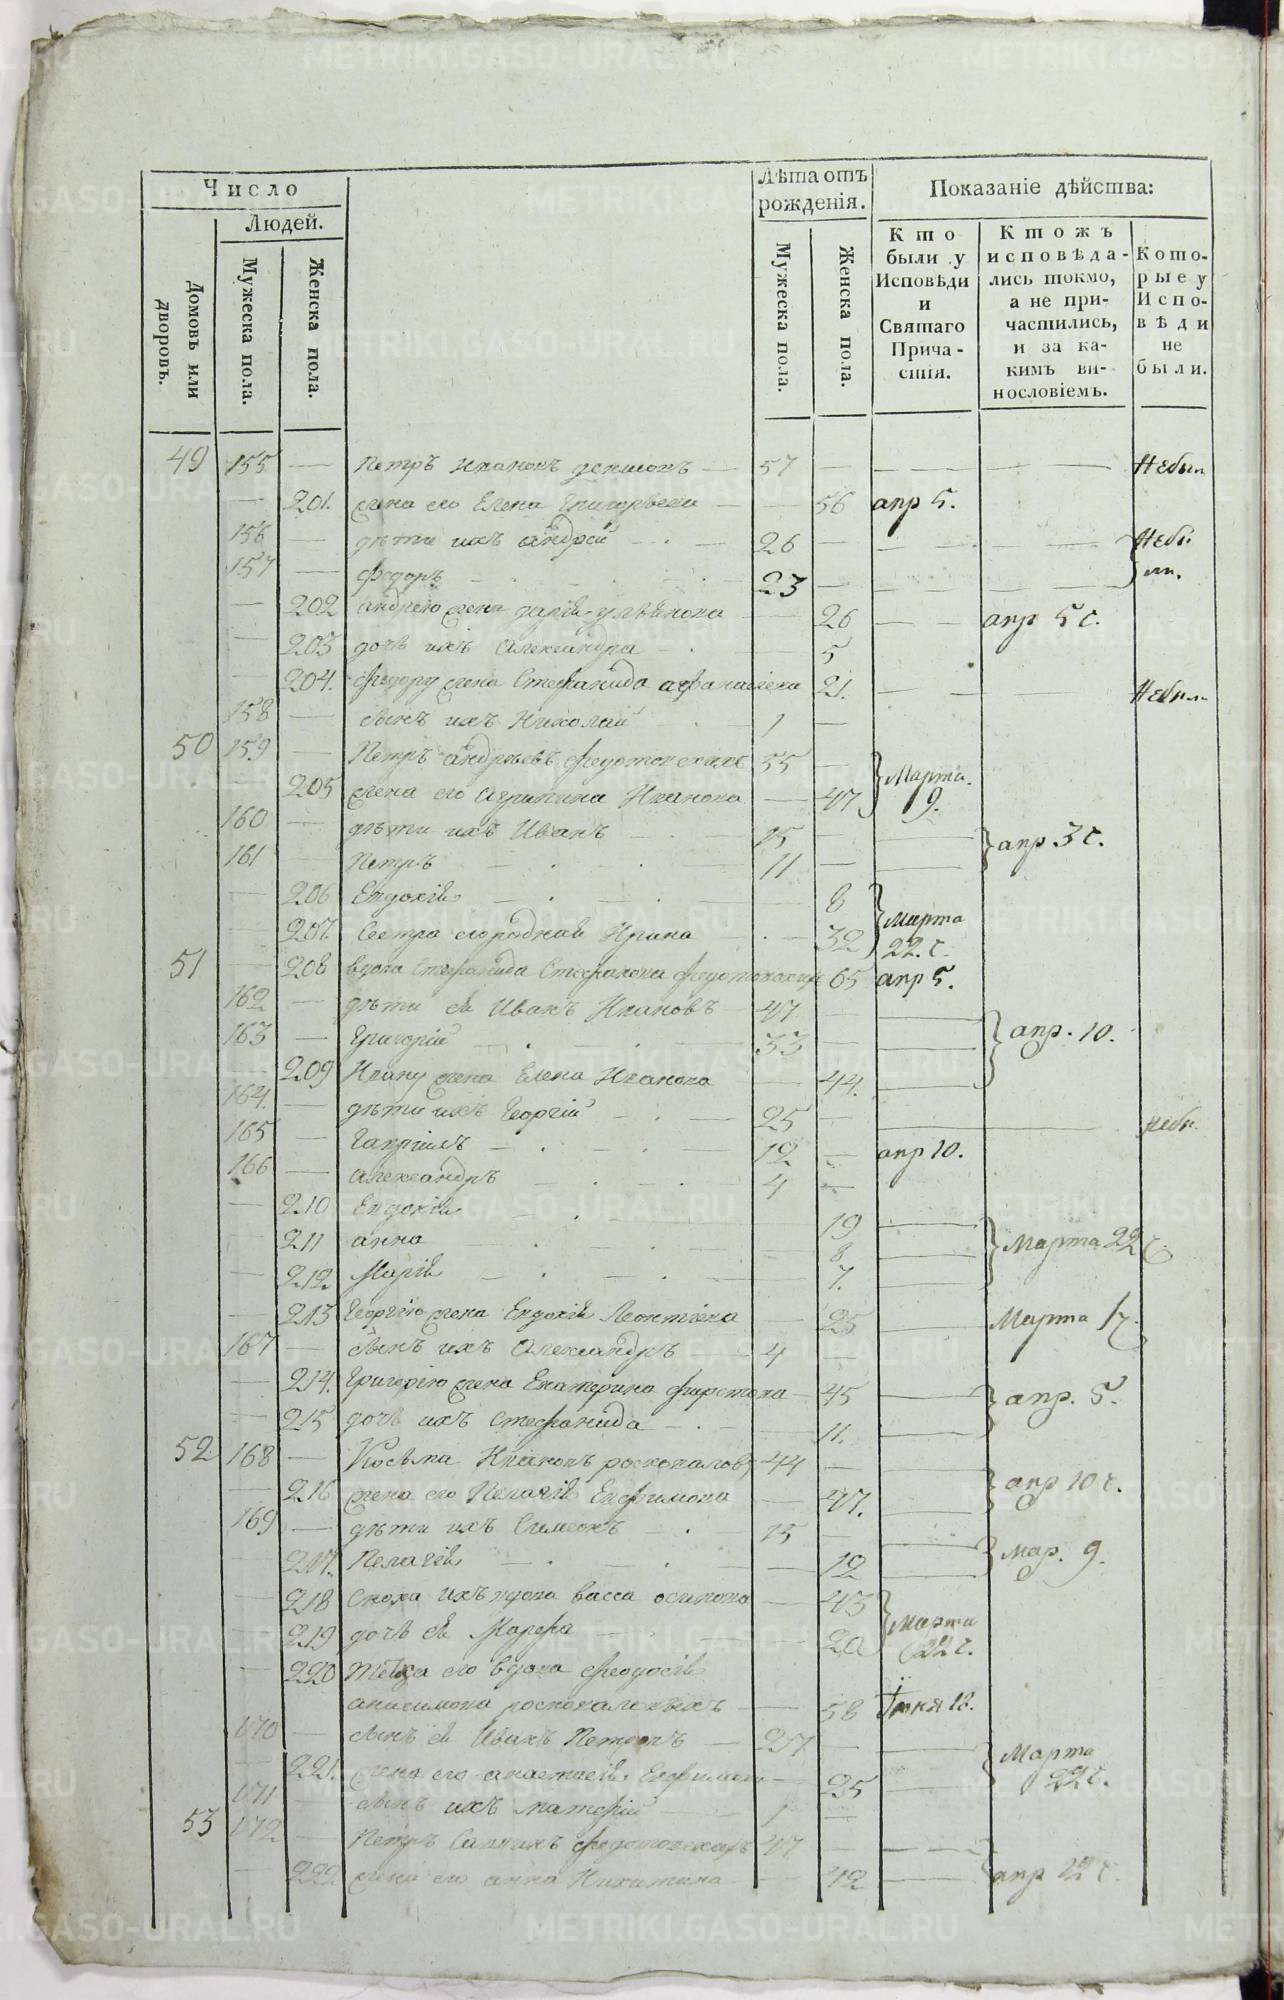 Число
Людей.
Домовъ или дворовъ.
Мужеска пола.
Женска пола.
Лѣта отъ рожденія.
Мужеска пола.
Женска пола.
Показаніе дѣйства:
Кто были у Исповѣди и Святаго Причастія.
Ктожъ исповѣдались токмо, а не причастились, и за какимъ винословіемъ.
Которые у Исповѣди не были.
49 155 — Петръ Ивановъ — 57 — — — Небыл
— 201. жена его Елена Григорьева — — 56 апр 5.
156 — дѣти ихъ андрей — 26 — — — Небы
157 — федоръ — 23 — — — ли.
— 202 андрею жена дарія — — 26 — — апр 5 с.
— 203 дочь ихъ Александра — — 5
— 204. федору жена Стефанида афанасьева 21. — — — Небыл
158 — сынъ ихъ Николай — 1 —
50 159 — Петръ андреевъ федотовскихъ 55 — Марта
— 205 жена его Агрипина Иванова — 47 9.
160 — дѣти ихъ Иванъ — 15 — — апр 3 с.
161 Петръ — 11 — —
— 206 Евдокія — — 8 Марта
— 207. Сестра его родная Ирина — — 32 22. с.
51 — 208 вдова Стефанида Стефанова 65 апр 5.
162 — дѣти ея Иванъ Ивановъ — 47 — — апр. 10.
163 — Григорій — 33 — —
209 Ивану жена Елена Иванова — 44. —
164. — дѣти ихъ Георгій — 25 — — — небы.
165 — Гавріилъ — 12 — апр 10.
166 — александръ — 4 —
— 210 Евдокія — — 19 — Марта 22 с.
— 211 анна — — 8 —
— 212 Марія — — 7. —
— 213 Георгію жена Евдокія Леонтьева — 25 — Марта 17.
167 — сынъ ихъ Александръ — 4 —
— 214. Григорію жена Екатерина — 45 — апр. 5.
— 215 дочь ихъ Стефанида — — 11. —
52 168 — Косьма Ивановъ 44 — — апр 10 с.
— 216 жена его Пелагія Евфимова — 47. —
169 — дѣти ихъ Симеонъ — 15 — — мар. 9.
— 217. Пелагія — — 12 —
— 218 Сноха ихъ вдова васса осипова — 43 Марта
— 219 дочь ея Марфа — — 20 22 с.
— 220 его вдова феодосія
анисимова — 58 Іюня 13.
170 — сынъ ея Иванъ Петровъ — 27 — — Марта
— 221. жена его анастасія — 25 — 22 с.
171 — сынъ ихъ матфей — 1 —
53 172 — Петръ Саввинъ 47 — — —
— 222 жена его анна Никитина — 42 — апр 22 с